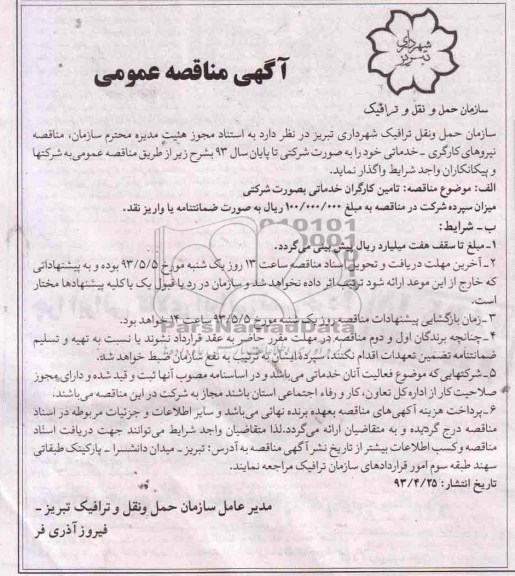 شهرداری
تبریز
آگهی مناقصه عمومی
سازمان حمل و نقل و ترافیک
سازمان حمل ونقل ترافیک شهرداری تبریز در نظر دارد به استناد مجوز هئیت مدیره محترم سازمان، مناقصه
نیروهای کارگری - خدماتی خود را به صورت شرکتی تا پایان سال ۹۳ بشرح زیر از طریق مناقصه عمومی به شرکتها
و پیمانکاران واجد شرایط واگذار نماید.
الف: موضوع مناقصه: تامین کارگران خدماتی بصورت شرکتی
میزان سپرده شرکت در مناقصه به مبلغ ۱۰۰/۰۰۰/۰۰۰ ریال به صورت ضمانتنامه یا واریز نقد.
ب - شرایط:
۱- مبلغ تا سقف هفت میلیارد ریال پیش بینی می گردد.
۲- آخرین مهلت دریافت و تحویل اسناد مناقصه ساعت ۱۳ روز یک شنبه مورخ ۹۳/۵/۵ بوده و به پیشنهاداتی
که خارج از این موعد ارائه شود ترتیب اثر داده نخواهد شد و سازمان در رد یا قبول یک یا کلیه پیشنهادها مختار
است.
۳- زمان بازگشایی پیشنهادات مناقصه روز یک شنبه مورخ ۹۳/۵/۵ ساعت ۱۴ خواهد بود.
۴- چنانچه برندگان اول و دوم مناقصه در مهلت مقرر حاضر به عقد قرارداد نشوند یا نسبت به تهیه و تسلیم
ضمانتنامه تضمین تعهدات اقدام نکنند، سپرده ایشان به ترتیب به نفع سازمان ضبط خواهد شد.
۵- شرکتهایی که موضوع فعالیت آنان خدماتی می باشد و در اساسنامه مصوب آنها ثبت و قید شده و دارای مجوز
صلاحیت کار از اداره کل تعاون، کار و رفاه اجتماعی استان باشند مجاز به شرکت در این مناقصه می باشند.
۶- پرداخت هزینه آگهی های مناقصه بعهده برنده نهائی می باشد و سایر اطلاعات و جزئیات مربوطه در اسناد
مناقصه درج گردیده و به متقاضیان ارائه می گردد. لذا متقاضیان واجد شرایط می توانند جهت دریافت اسناد
مناقصه و کسب اطلاعات بیشتر از تاریخ نشر آگهی مناقصه به آدرس: تبریز - میدان دانشسرا - پارکینگ طبقاتی
سهند طبقه سوم امور قراردادهای سازمان ترافیک مراجعه نمایند.
تاریخ انتشار: ۹۳/۴/۲۵
مدیر عامل سازمان حمل ونقل و ترافیک تبریز -
فیروز آذری فر
ParsNamadData